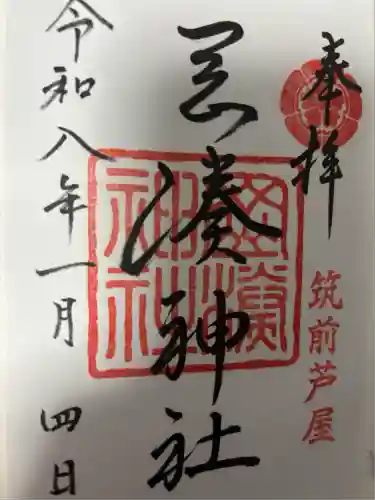 奉拝
筑前芦屋
岡湊神社
岡湊神社
令和八年一月四日